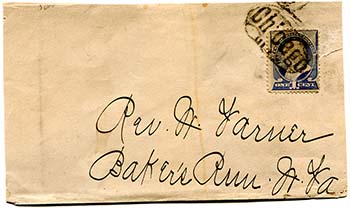 Chicago
ONE 1 CENT
Rev. W Varner
Bakers Run W Va